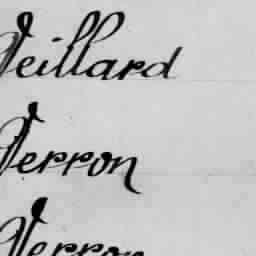 Veillard
Verron
Verron